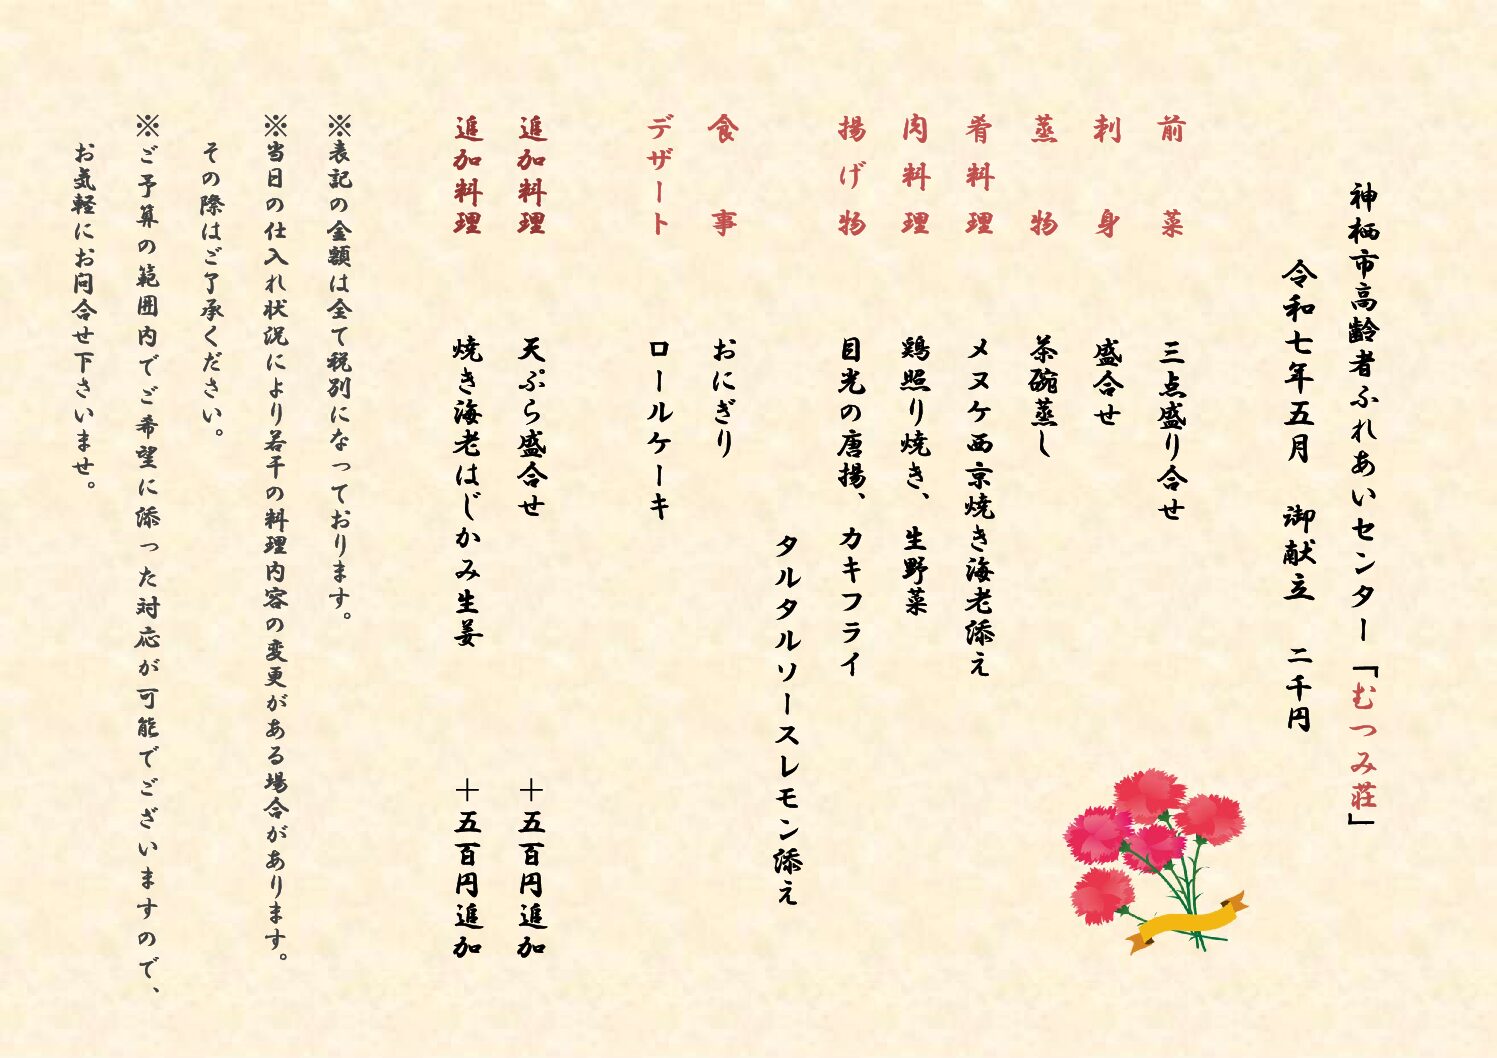 神栖市高齢者ふれあいセンター「むつみ荘」
令和七年五月　御献立　二千円
前菜　三点盛り合せ
刺身　盛合せ
蒸物　茶碗蒸し
肴料理　メヌケ西京焼き海老添え
肉料理　鶏照り焼き、生野菜
揚げ物　目光の唐揚、カキフライ
タルタルソースレモン添え
食事　おにぎり
デザート　ロールケーキ
追加料理　天ぷら盛合せ　＋五百円追加
追加料理　焼き海老はじかみ生姜　＋五百円追加
※表記の金額は全て税別になっております。
※当日の仕入れ状況により若干の料理内容の変更がある場合があります。
その際はご了承ください。
※ご予算の範囲内でご希望に添った対応が可能でございますので、
お気軽にお問合せ下さいませ。